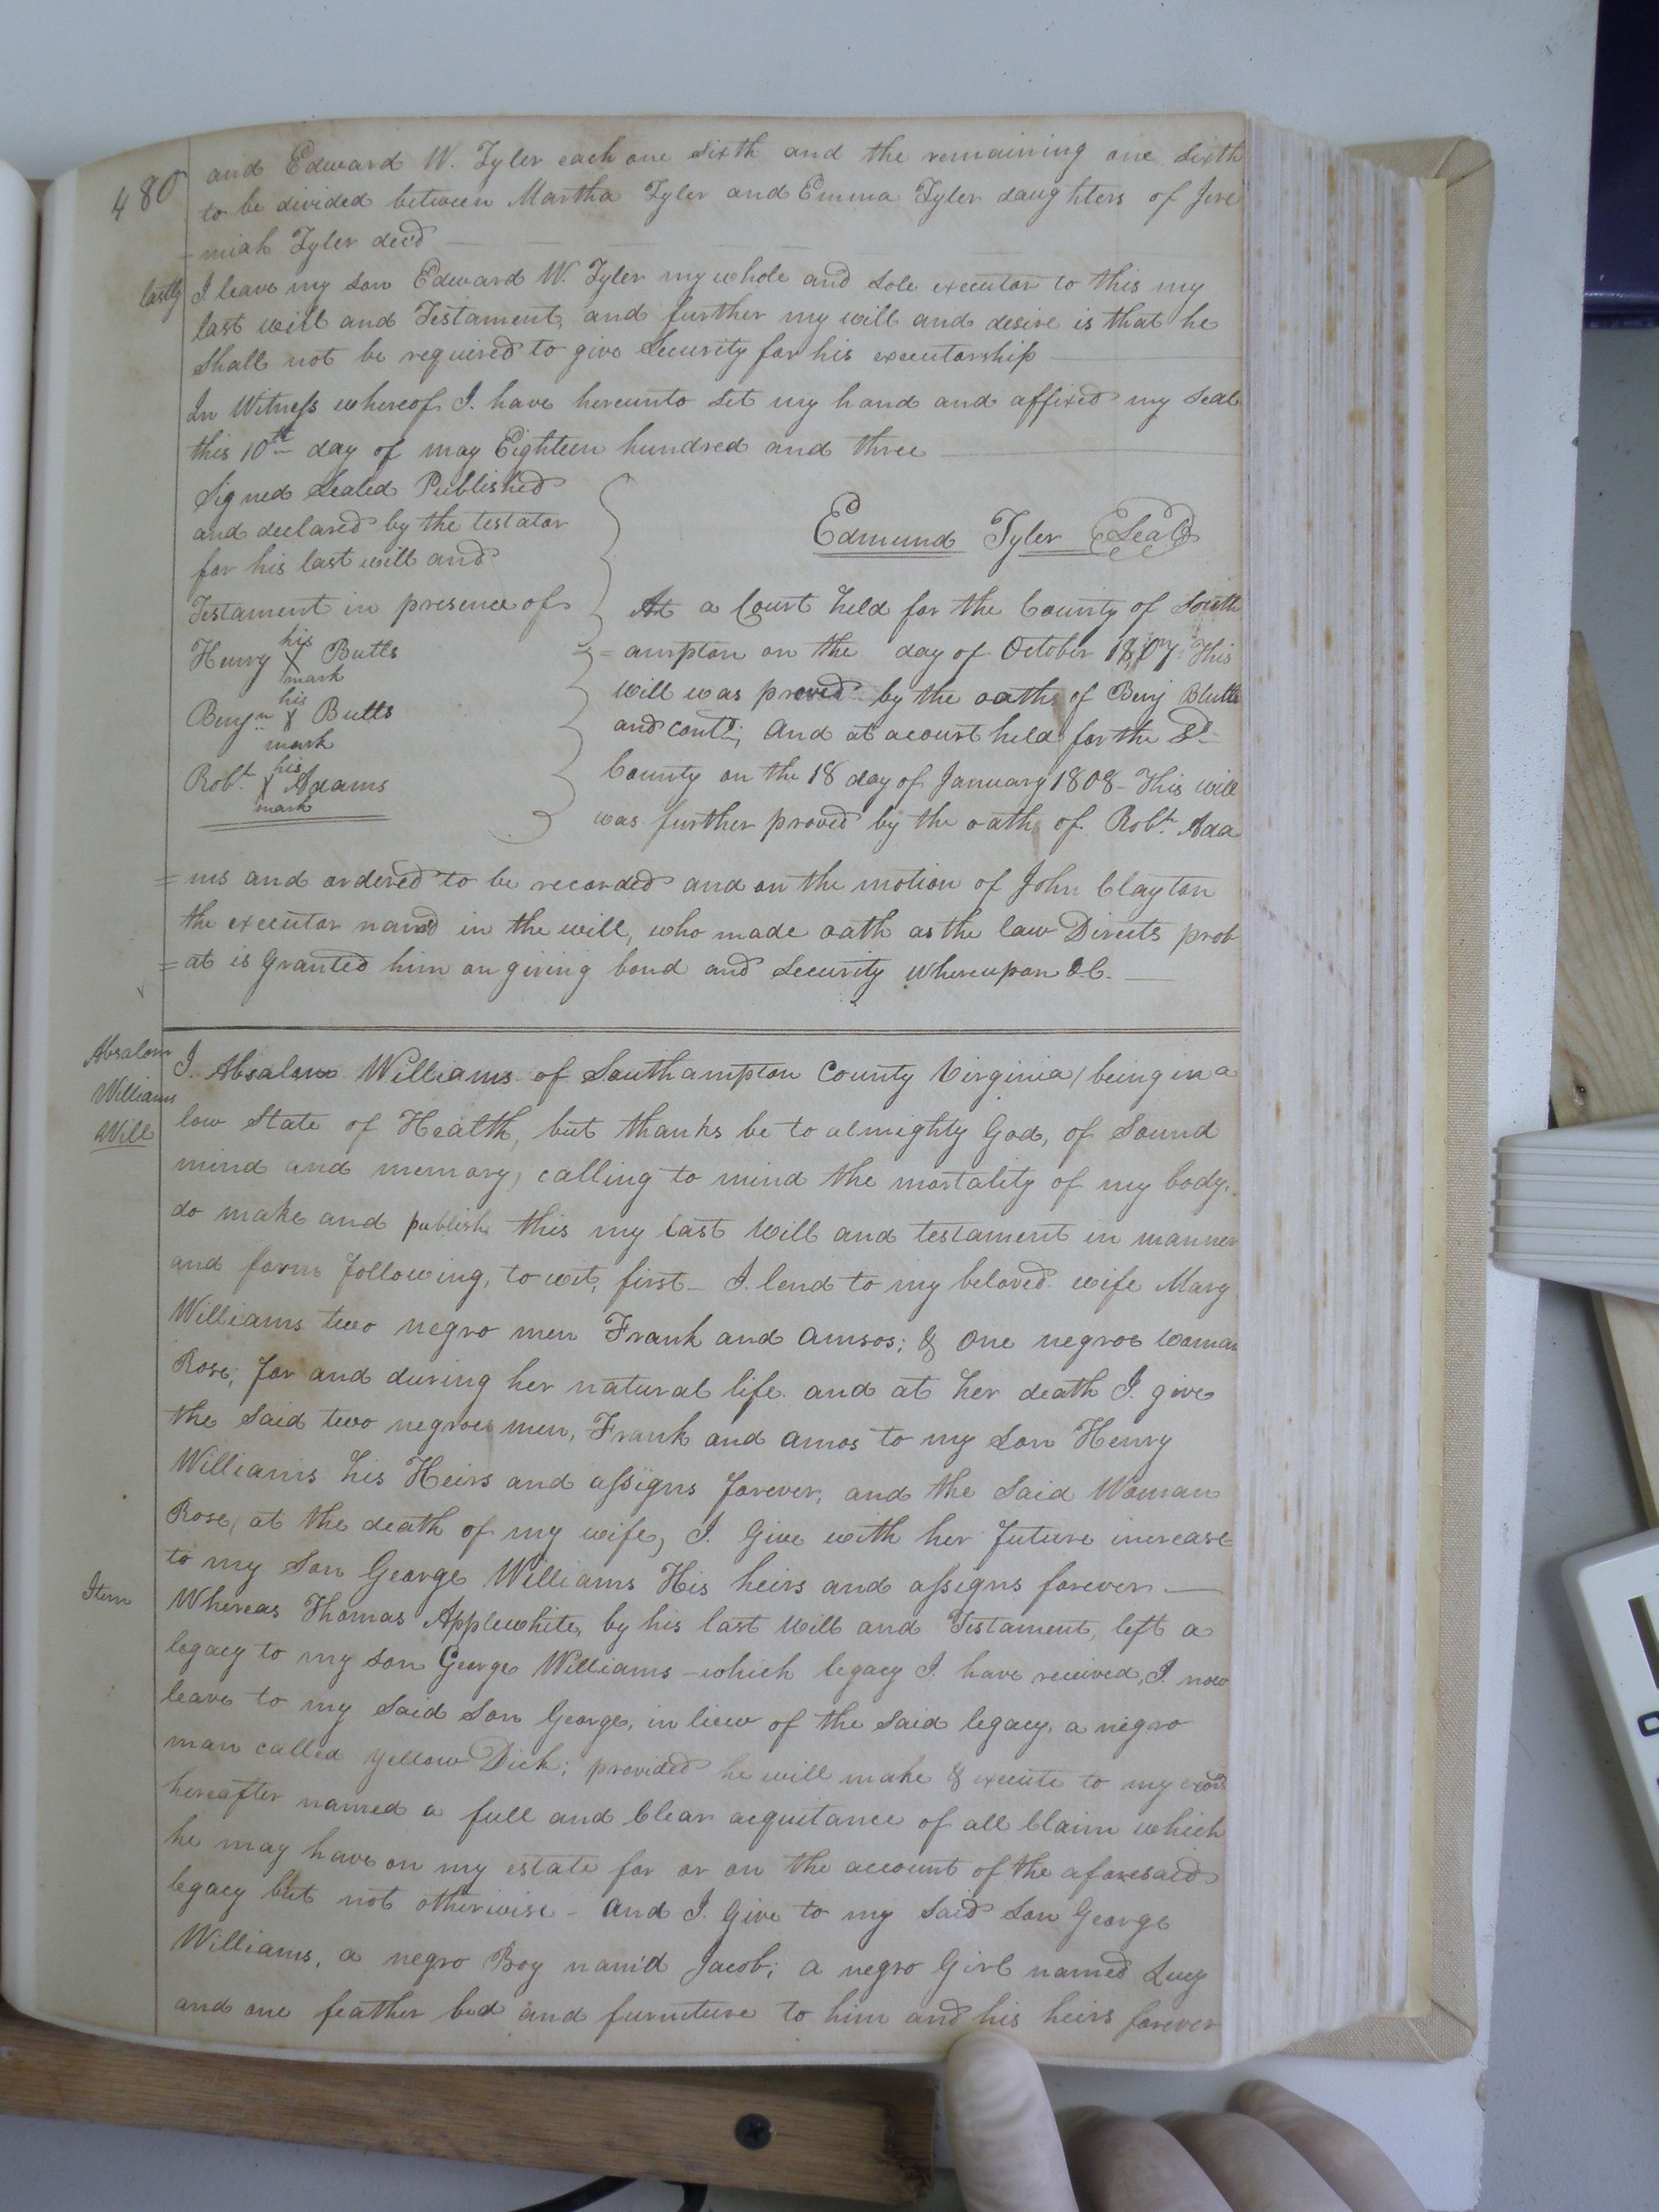 480
and Edward W. Tyler each one sixth and the remaining one sixth
to be divided between Martha Tyler and Emma Tyler daughters of Jere
= miah Tyler decd
lastly I leave my son Edward W. Tyler my whole and sole executor to this my
last will and Testament, and further my will and desire is that he
Shall not be required to give Security for his executorship
In Witness whereof I. have hereunto set my hand and affixed my seal
this 10th day of may Eighteen hundred and three
Signed Sealed Published
and declared by the testator
for his last will and
Testament in presence of
Henry his X mark Butts
Benjn his X mark Butts
Robt. his X mark Adams
Edmund Tyler Seal
At a Court held for the County of South
= ampton on the day of October 1807. This
will was proved by the oath of Benj Butts
and contd; And at a court held for the Sd
County on the 18 day of January 1808 - This will
was further proved by the oath of Robt. Ada
= ms and ordered to be recorded and on the motion of John Clayton
the executor named in the will, who made oath as the law Directs prob
= at is Granted him on giving bond and Security whereupon &C.
Absalom
Williams
Will
I. Absalom Williams of Southampton County Virginia, being in a
low State of Health, but thanks be to almighty God, of Sound
mind and memory, calling to mind the mortality of my body,
do make and publish this my last Will and testament in manner
and form following, to wit, first - I. lend to my beloved wife Mary
Williams two negro men Frank and Amsos; & One negroe woman
Rose; for and during her natural life. and at her death I. give
the Said two negroes men, Frank and Amos to my Son Henry
Williams his Heirs and assigns forever, and the Said Woman
Rose, at the death of my wife, I. Give with her future increase
to my Son George Williams His heirs and assigns forever.
Item Whereas Thomas Applewhite, by his last Will and Testament, left a
legacy to my son George Williams - which legacy I. have received, I. now
leave to my Said Son George, in liew of the Said legacy, a negro
man called yellow Dick; provided he will make & execute to my exors
hereafter named a full and Clear acquitance of all Claim which
he may have on my estate for or on the account of the aforesaid
legacy but not otherwise - And I. Give to my Said Son George
Williams, a negro Boy nam'd Jacob; a negro Girl named Lucy
and one feather bed and furniture to him and his heirs forever